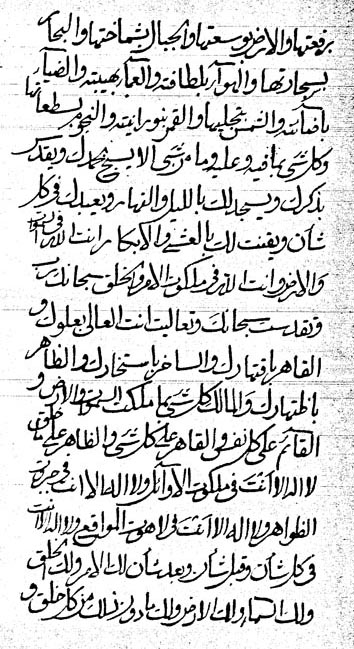 برفعتها والارض بوسعتها والجبال بشماختها والبحار
والهوآء بلطافته والعمآء بهيبته والضيآء
باضآئته والشمس بتجليها والقمر بنورانيته والنجوم بسطعانها
وكل شئ بما فيه وعليه وما من شئ الا يسبح بحمدك ويقدس
بذكرك ويسجد لك بالليل والنهار ويعبدك في كل
شأن ويقنت لك بالعشي والابكار انت الله في السموات
والارض وانت الله في ملكوت الامر والخلق سبحانك
وتقدست سبحانك وتعاليت انت العالي بعلوك و
القاهر باقتهارك والظاهر
باظتهارك والمالك كل شئ بما ملكت السموات والارض و
القآئم على كل نفس والقاهر على كل شئ والظاهر على ما خلق
لا اله الا انت في ملكوت الاوآئل ولا اله الا انت في
الظواهر ولا اله الا انت في لاهوت المواقع ولا اله الا انت
في كل شأن وقبل شأن وبعد شأن لك الامر ولك الخلق
ولك السمآء ولك الارض ولك ما دون ذلك من كل خلق و